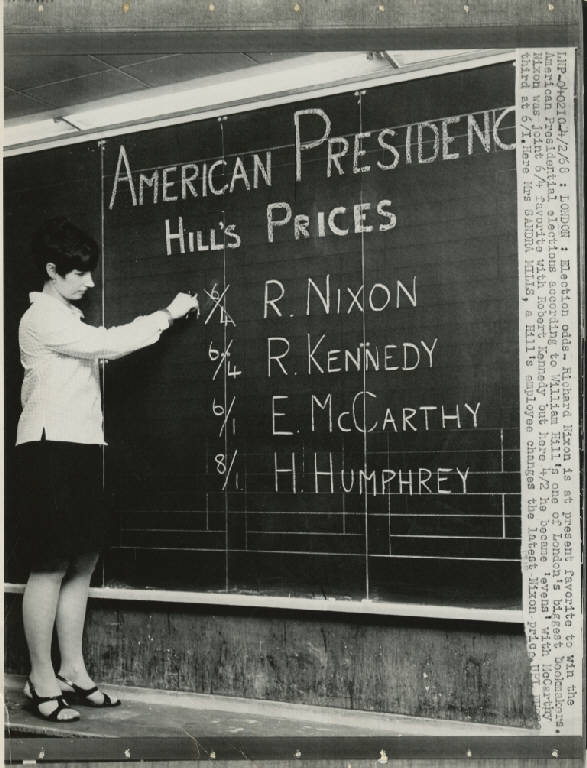 AMERICAN PRESIDENC
HILL'S PRICES
6/4 R. NIXON
6/4 R. KENNEDY
6/1 E. MCCARTHY
8/1 H. HUMPHREY
LNP-040210-4/2/68 : LONDON : Election odds- Richard Nixon is at present favorite to win the
American Presidential elections according to William Hill's one of London's biggest bookmakers.
Nixon was joint 6/4 favorite with Robert Kennedy but here 4/2 he became 'evens' with McCarthy
third at 6/1.Here Mrs SANDRA MILLS, a Hill's employee changes the latest Nixon price.UPI